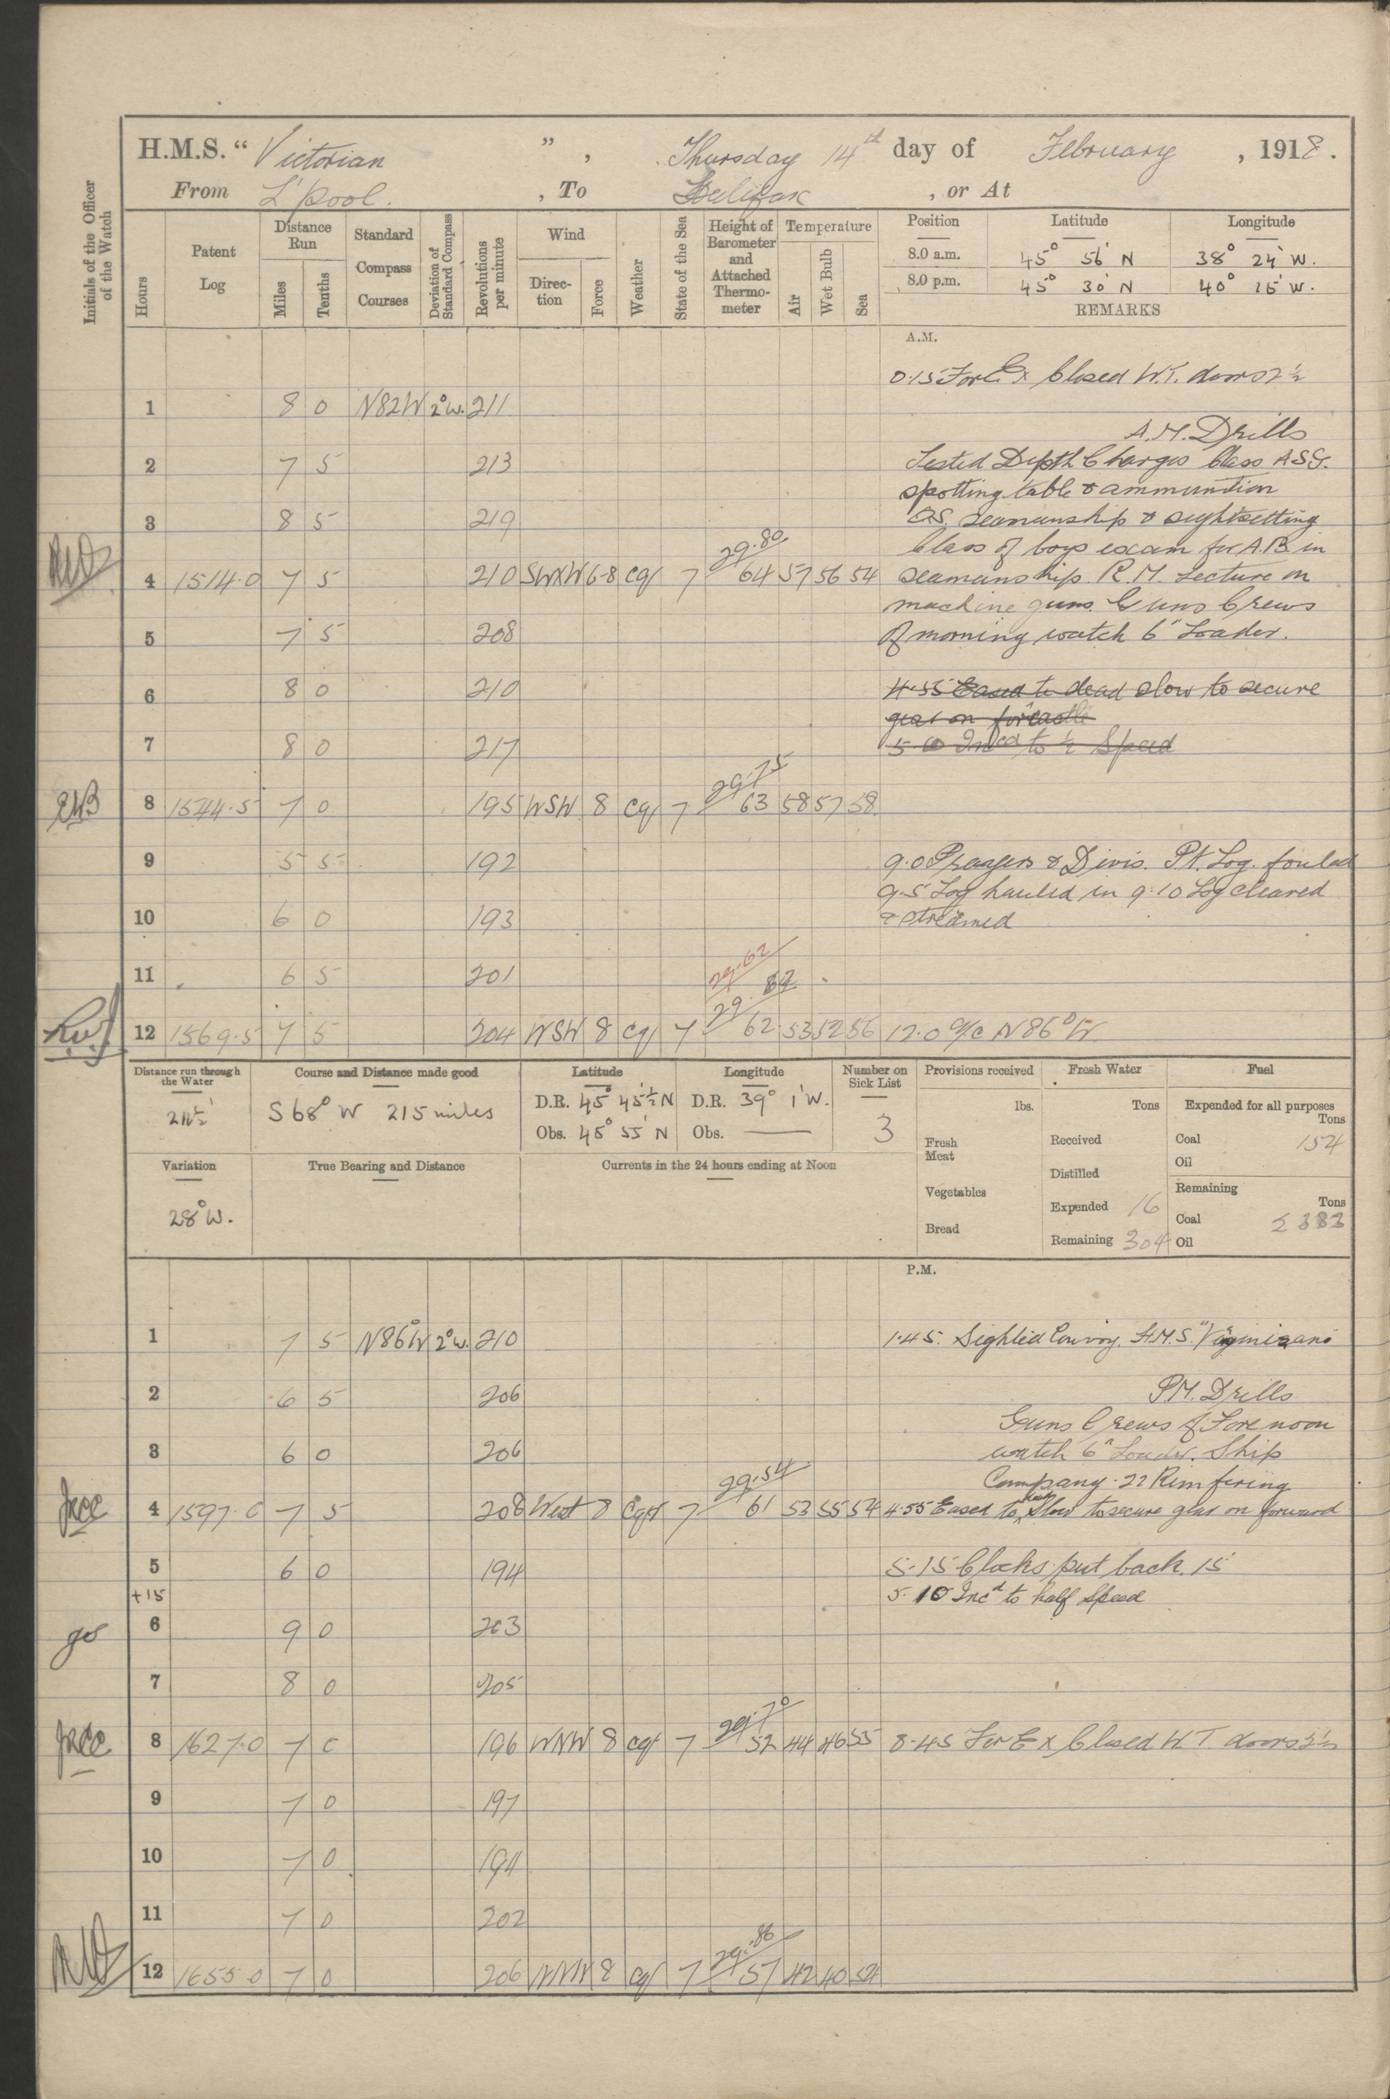 H.M.S. " Victorian " , Thursday 14th day of February , 1918.
From L'pool. , To Halifax , or At
Initials of the Officer of the Watch
Hours
Patent Log
Distance Run
Miles
Tenths
Standard Compass Courses
Deviation of Standard Compass
Revolutions per minute
Wind
Direction
Force
Weather
State of the Sea
Height of Barometer and Attached Thermometer
Temperature
Air
Wet Bulb
Sea
Position Latitude Longitude
8.0 a.m. 45° 56' N 38° 24' W.
8.0 p.m. 45° 30' N 40° 15' W.
REMARKS
A.M.
0.15 For Ex Closed W.T. doors 2½
1 8 0 N82W 2°W. 211
A.M. Drills
2 7 5 213 Tested Depth Charges Class A.S.G.
spotting table & ammunition
3 8 5 219 seamanship & sightsetting
Class of boys exam for A.B. in
4 1514.0 7 5 210 SWXW 6-8 cq 7 29.80 64 57 56 54 seamanship. R.M. Lecture on
machine guns. Guns Crews
5 7 5 208 of morning watch 6" Loader.
6 8 0 210 4.55 Eased to dead slow to secure
gear on forcastle
7 8 0 217 5.10 Incd to ½ Speed
8 1544.5 7 0 195 WSW 8 cq 7 29.75 63 58 57 58
9 5 5 192 9.0 Prayers & Divis. Pt. Log. fouled
9.5 Log hauled in 9.10 Log cleared
10 6 0 193 & streamed
11 6 5 201
29.62
12 1569.5 7 5 204 WSW 8 cq 7 29. 62 53 52 56 12.0 a/c N86°W
Distance run through the Water
Course and Distance made good
S 68° W 215 miles
Latitude
D.R. 45° 45½' N
Obs. 45° 55' N
Longitude
D.R. 39° 1' W.
Obs. ——
Number on Sick List
3
Provisions received
lbs.
Fresh Meat
Vegetables
Bread
Fresh Water
Tons
Received
Distilled
Expended 16
Remaining 304
Fuel
Expended for all purposes
Tons
Coal 154
Oil
Remaining
Tons
Coal 2383
Oil
Variation
28° W.
True Bearing and Distance
Currents in the 24 hours ending at Noon
P.M.
1 7 5 N86°W 2°W. 210 1.45. Sighted Convoy. H.M.S. "Virginian"
2 6 5 206 P.M. Drills
Guns Crews of Forenoon
3 6 0 206 watch 6" Loader. Ship
Company .22 Rim firing
4 1597.0 7 5 208 West 8 cq 7 29.54 61 53 55 54 4.55 Eased to dead Slow to secure gear on forward
5 6 0 194 5.15 Clocks put back. 15
+15 5.10 Incd to half Speed
6 9 0 203
7 8 0 205
8 1627.0 7 0 196 WNW 8 cq 7 29.70 52 44 46 55 8.45 For Ex Closed W.T. doors
9 7 0 197
10 7 0 194
11 7 0 202
12 1655.0 7 0 206 8 cq 7 29.86 57 42 40 54